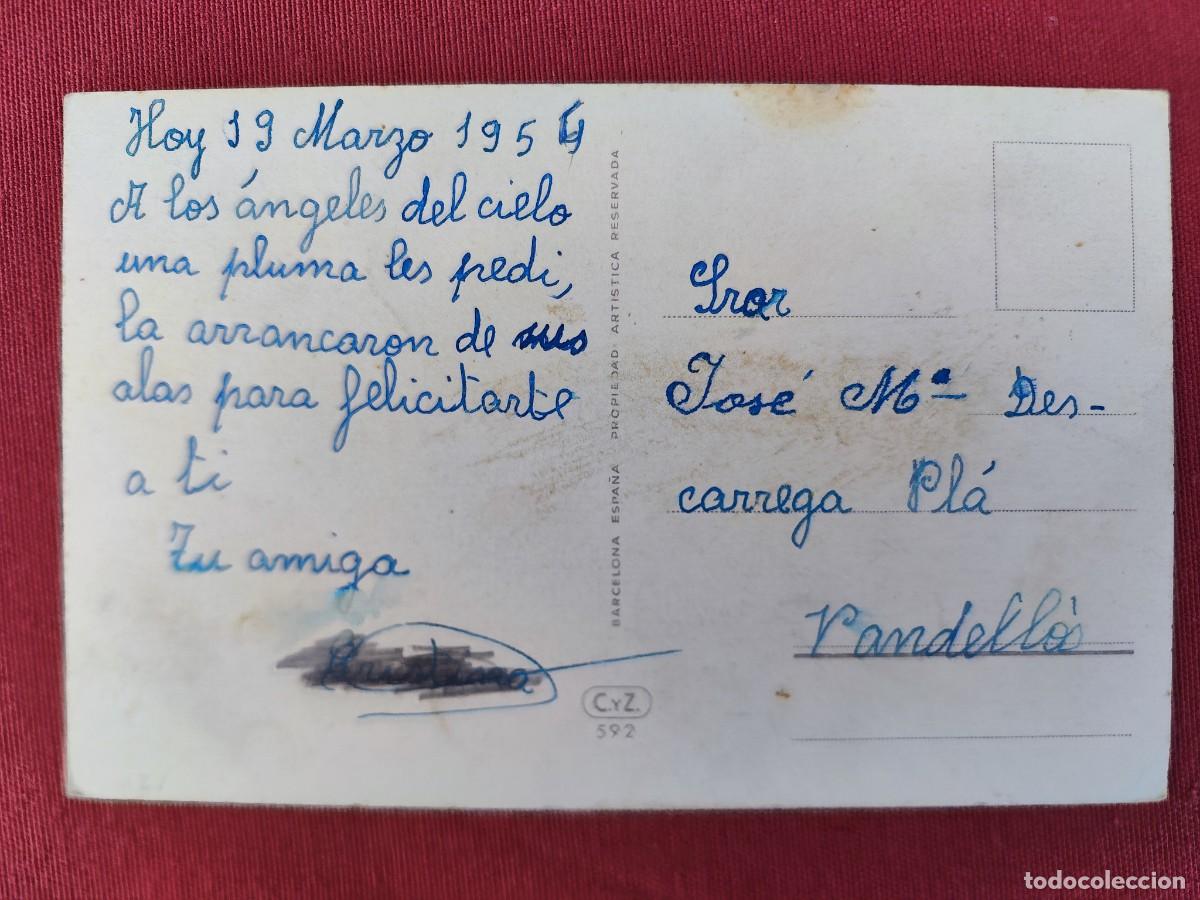 Hoy 19 Marzo 1954
A los ángeles del cielo
una pluma les pedi,
la arrancaron de sus
alas para felicitarte
a ti
Tu amiga
BARCELONA ESPAÑA PROPIEDAD ARTISTICA RESERVADA
C.YZ.
592
José Mª Des-
carrega Plá
Vandellós
todocoleccion